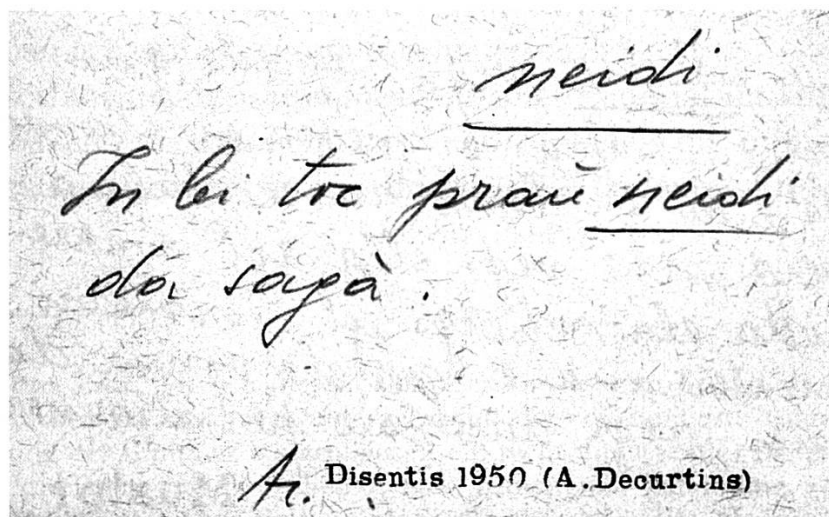 neidi
In bi toc prau neidi
da sagà.
Disentis 1950 (A.Decurtins)